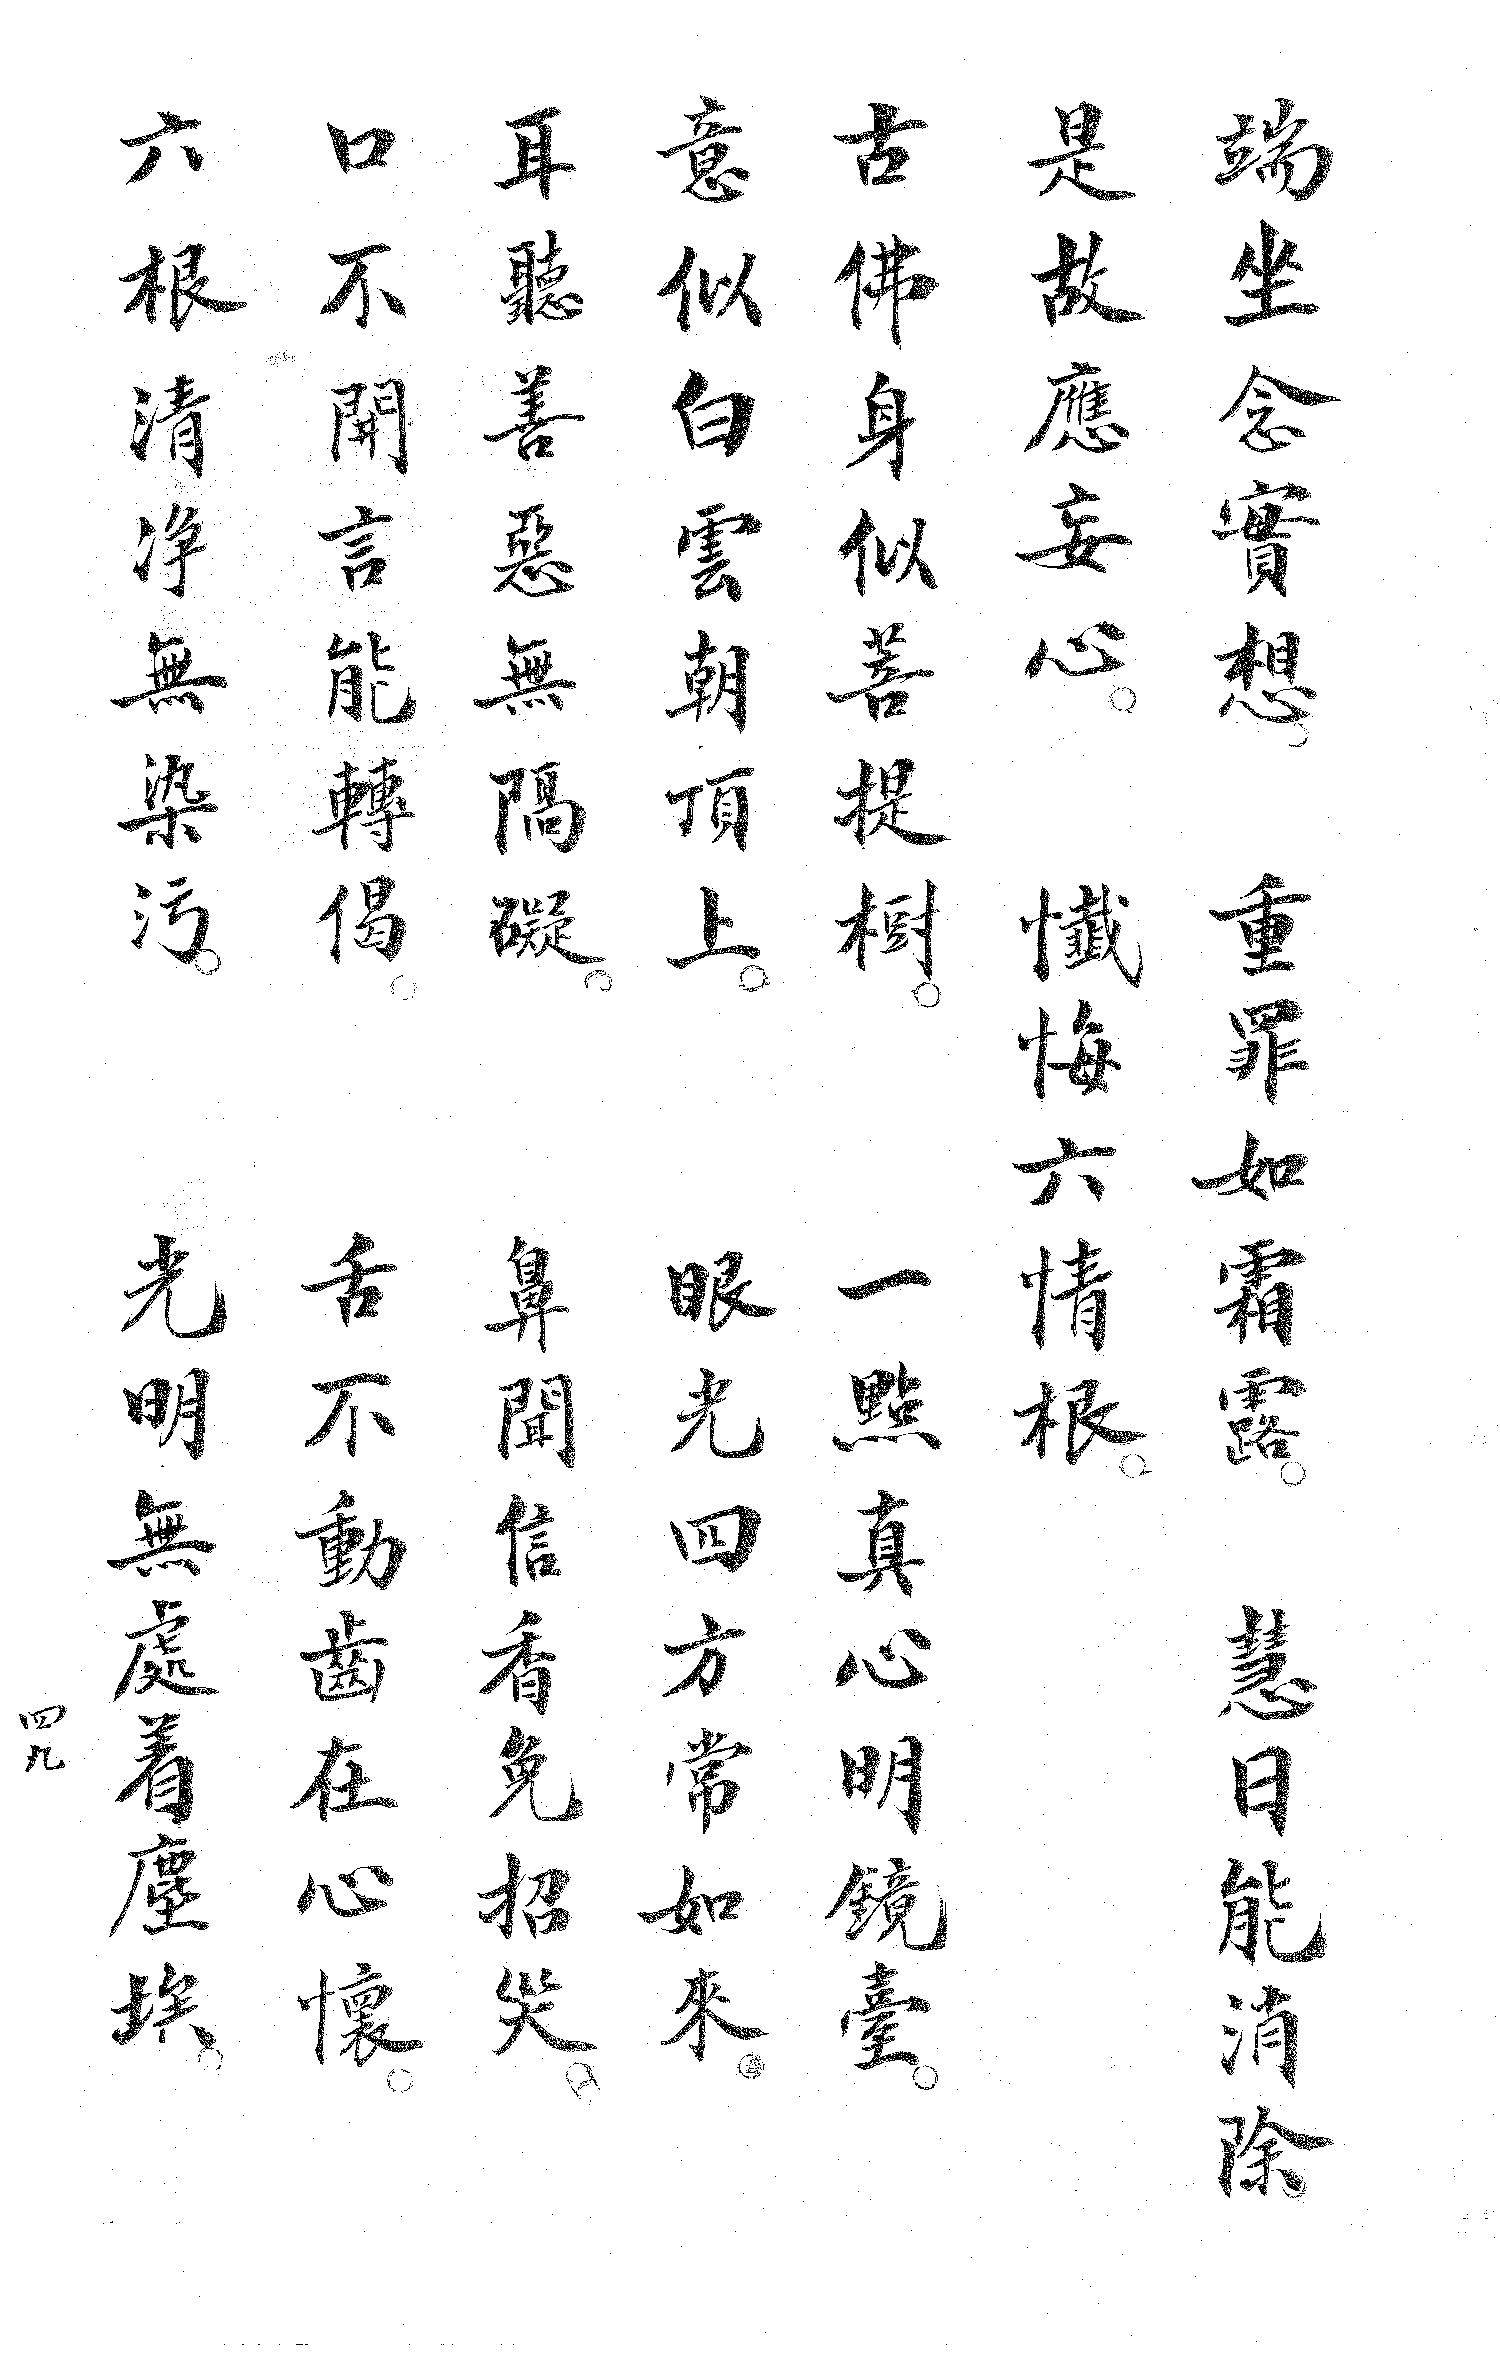 端坐念實想。　重罪如霜露。　慧日能消除。
是故應妄心。　懺悔六情根。
古佛身似菩提樹。　一點真心明鏡臺。
意似白雲朝頂上。　眼光四方常如來。
耳聽善惡無隔礙。　鼻聞信香免招災。
口不開言能轉偈。　舌不動齒在心懷。
六根清淨無染污。　光明無處着塵埃。
四九